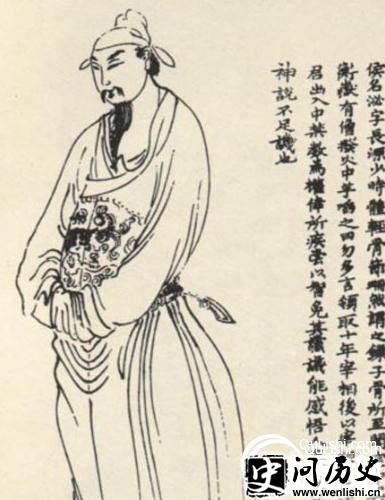 侯名泌字長源少時體輕骨節珊然謂之鎖子骨所至
衡嶽有僧撥火中芋啗之曰勿多言領取十年宰相後以
君出入中禁數為權倖所疾常以智免其讜議能感悟
神說不足譏也
Qulishi.com
问历史
www.wenlishi.cn